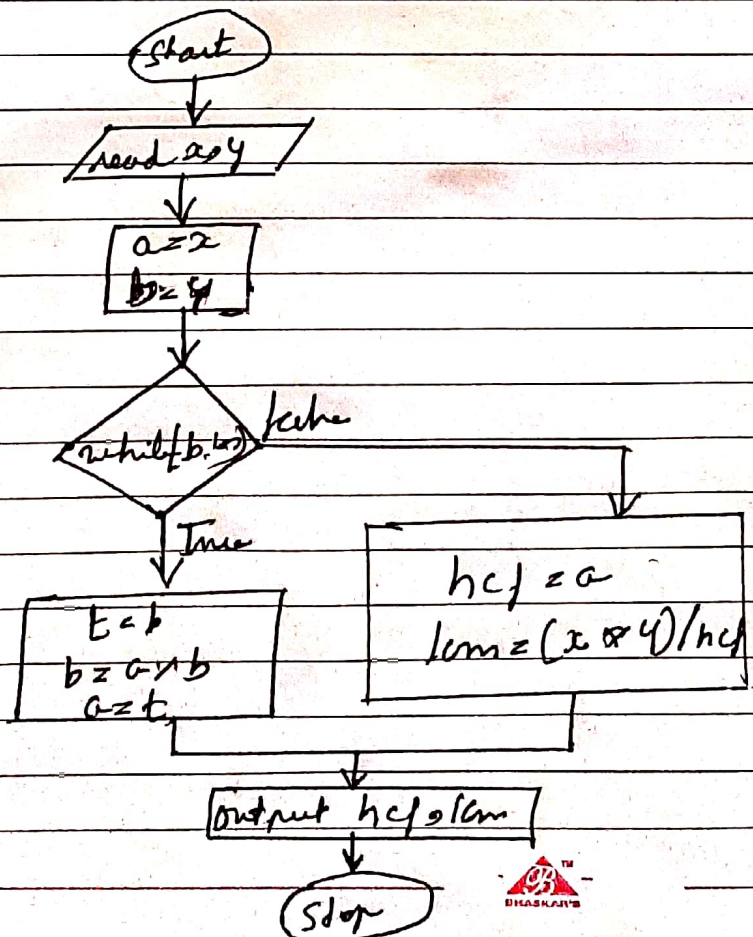 Start
read x, y
a = x
b = y
while(b!=0)
False
True
t = b
b = a % b
a = t
hcf = a
lcm = (x * y)/hcf
output hcf, lcm
Stop
B
TM
BHASKAR'S